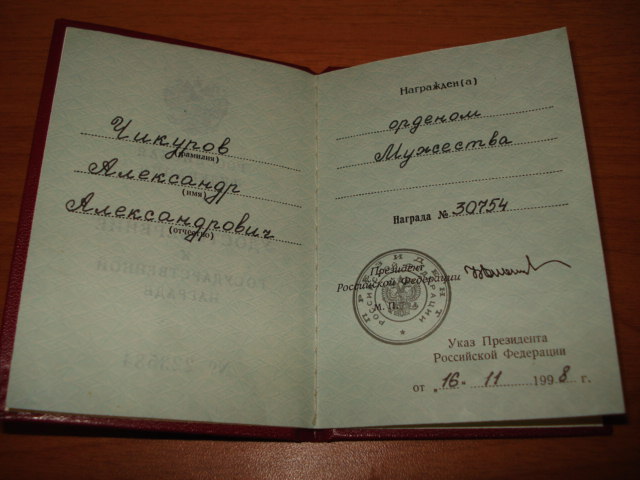 Чикуров
(фамилия)
Александр
(имя)
Александрович
(отчество)
Награжден(а)
орденом
Мужества
Награда № 30754
Президент
Российской Федерации
М. П.
ПРЕЗИДЕНТ
РОССИЙСКОЙ ФЕДЕРАЦИИ
Указ Президента
Российской Федерации
от „16“ 11 1998 г.